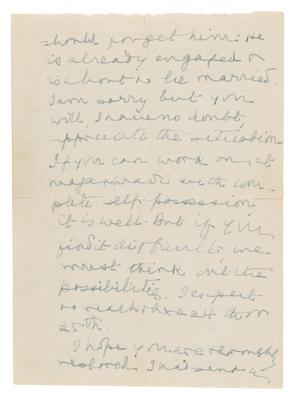 should forget him. He
is already engaged or
is about to be married.
I am sorry but you
will I have no doubt
appreciate the situation.
If you can work on at
maganwadi with com-
plete self possession
it is well. But if you
find it difficult we
must think out the
possibilities. I expect
to reach there on
25th.
I hope you are thoroughly
restored.